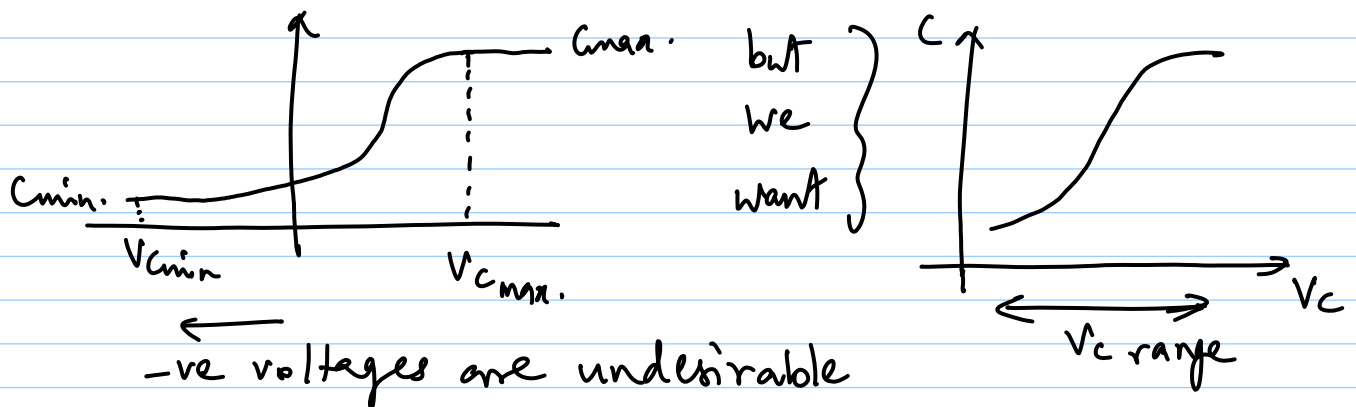 Cmax.
but
we
want
C
Cmin.
VCmin
VCmax.
VC
VC range
-ve voltages are undesirable